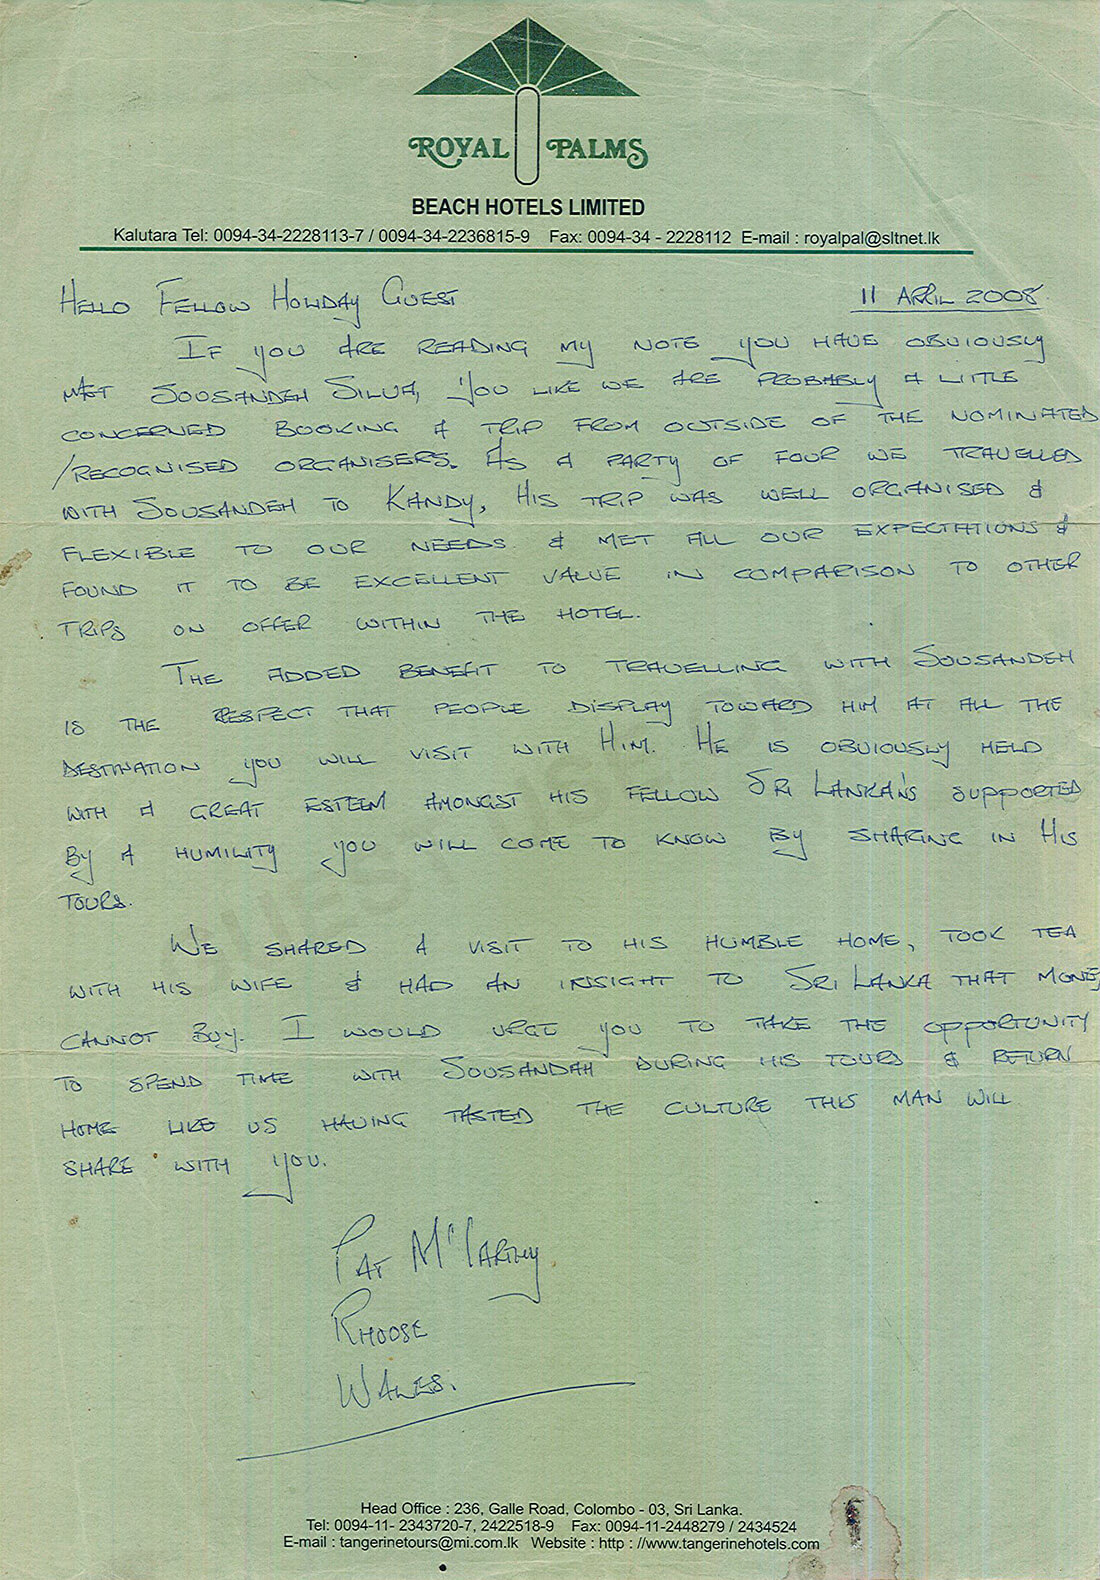 ROYAL PALMS
BEACH HOTELS LIMITED
Kalutara Tel: 0094-34-2228113-7 / 0094-34-2236815-9 Fax: 0094-34 - 2228112 E-mail : royalpal@sltnet.lk
HELLO FELLOW HOLIDAY GUEST 11 APRIL 2008
IF YOU ARE READING MY NOTE YOU HAVE OBVIOUSLY
MET SOUSANDEH SILVA, YOU LIKE WE ARE PROBABLY A LITTLE
CONCERNED BOOKING A TRIP FROM OUTSIDE OF THE NOMINATED
/RECOGNISED ORGANISERS. AS A PARTY OF FOUR WE TRAVELLED
WITH SOUSANDEH TO KANDY, HIS TRIP WAS WELL ORGANISED &
FLEXIBLE TO OUR NEEDS & MET ALL OUR EXPECTATIONS &
FOUND IT TO BE EXCELLENT VALUE IN COMPARISON TO OTHER
TRIPS ON OFFER WITHIN THE HOTEL.
THE ADDED BENEFIT TO TRAVELLING WITH SOUSANDEH
IS THE RESPECT THAT PEOPLE DISPLAY TOWARD HIM AT ALL THE
DESTINATION YOU WILL VISIT WITH HIM. HE IS OBVIOUSLY HELD
WITH A GREAT ESTEEM AMONGST HIS FELLOW SRI LANKAN'S SUPPORTED
BY A HUMILITY YOU WILL COME TO KNOW BY SHARING IN HIS
TOURS.
WE SHARED A VISIT TO HIS HUMBLE HOME, TOOK TEA
WITH HIS WIFE & HAD AN INSIGHT TO SRI LANKA THAT MONEY
CANNOT BUY. I WOULD URGE YOU TO TAKE THE OPPORTUNITY
TO SPEND TIME WITH SOUSANDAH DURING HIS TOURS & RETURN
HOME LIKE US HAVING TASTED THE CULTURE THIS MAN WILL
SHARE WITH YOU.
PAT McCARTHY
RHOOSE
WALES.
Head Office : 236, Galle Road, Colombo - 03, Sri Lanka.
Tel: 0094-11- 2343720-7, 2422518-9 Fax: 0094-11-2448279 / 2434524
E-mail : tangerinetours@mi.com.lk Website : http : //www.tangerinehotels.com